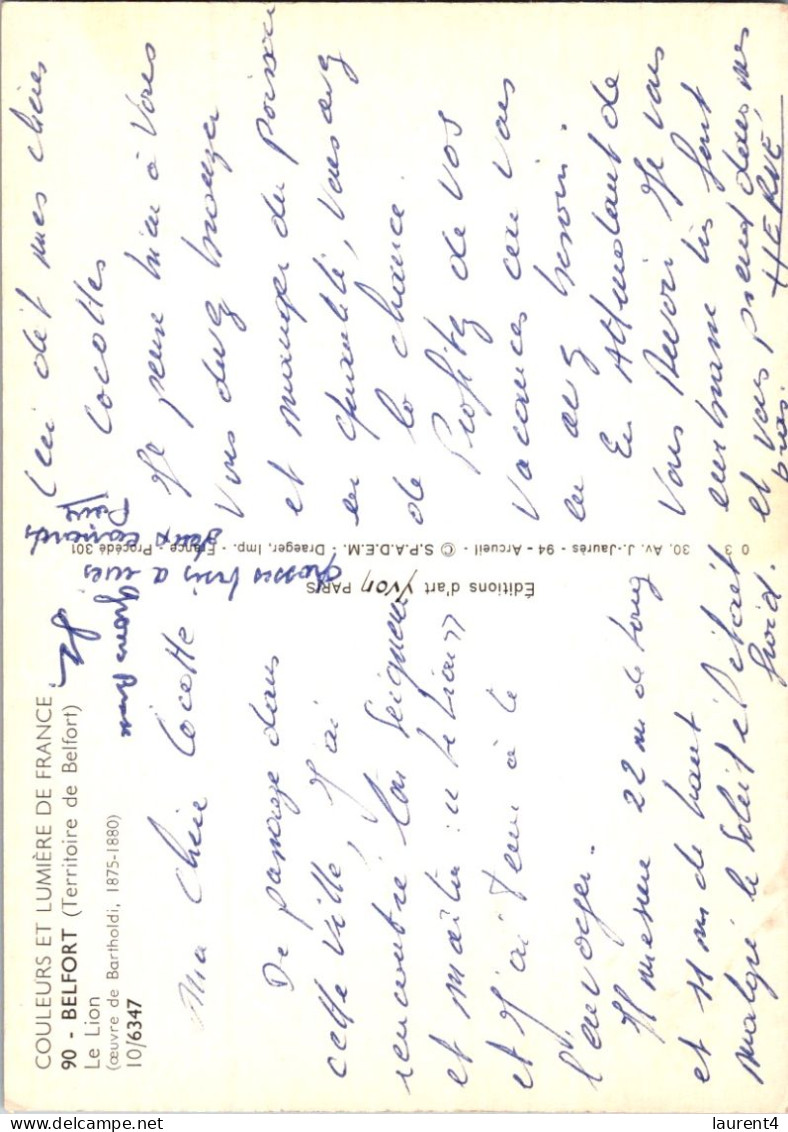 COULEURS ET LUMIÈRE DE FRANCE
90 - BELFORT (Territoire de Belfort)
Le Lion
(œuvre de Bartholdi, 1875-1880)
10/6347
Ma Chère Cocotte
De passage dans
cette Ville, J'ai
rencontré Son Seigneur
et maître: "le Lion"
et J'ai tenu à te
l'envoyer.
Il mesure 22 m de long
et 11 m de haut
malgré le soleil il était
froid.
Grosses bises à mes
deux canards
Éditions d'art Yvon PARIS
30, Av. J.-Jaurès - 94 - Arcueil - © S.P.A.D.E.M. - Draeger, Imp. - France - Procédé 301
Ceci dit mes chères
Cocottes
Je pense bien à Vous
Vous devez
et manger du poisson
en quantité, Vous avez
de la chance.
Profitez de vos
Vacances car vous
en avez besoin.
En Attendant de
Vous Revoir Je vous
embrasse très fort
et vous prend dans mes
bras.
HERVÉ
laurent4